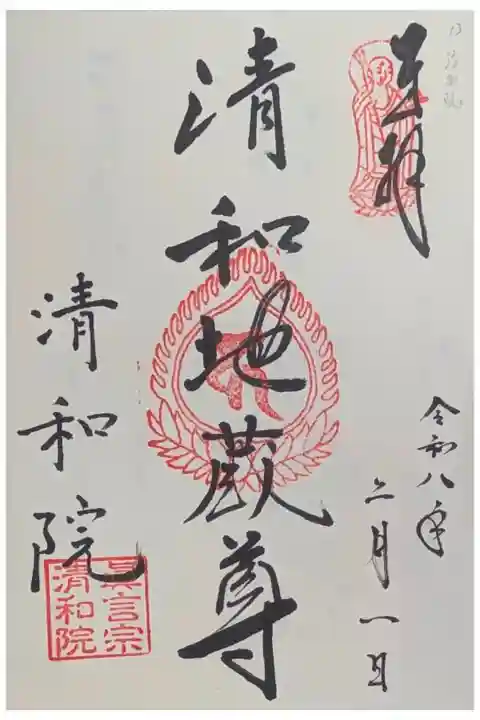 奉拝
令和八年
二月一日
清和地蔵尊
清和院
眞言宗
清和院